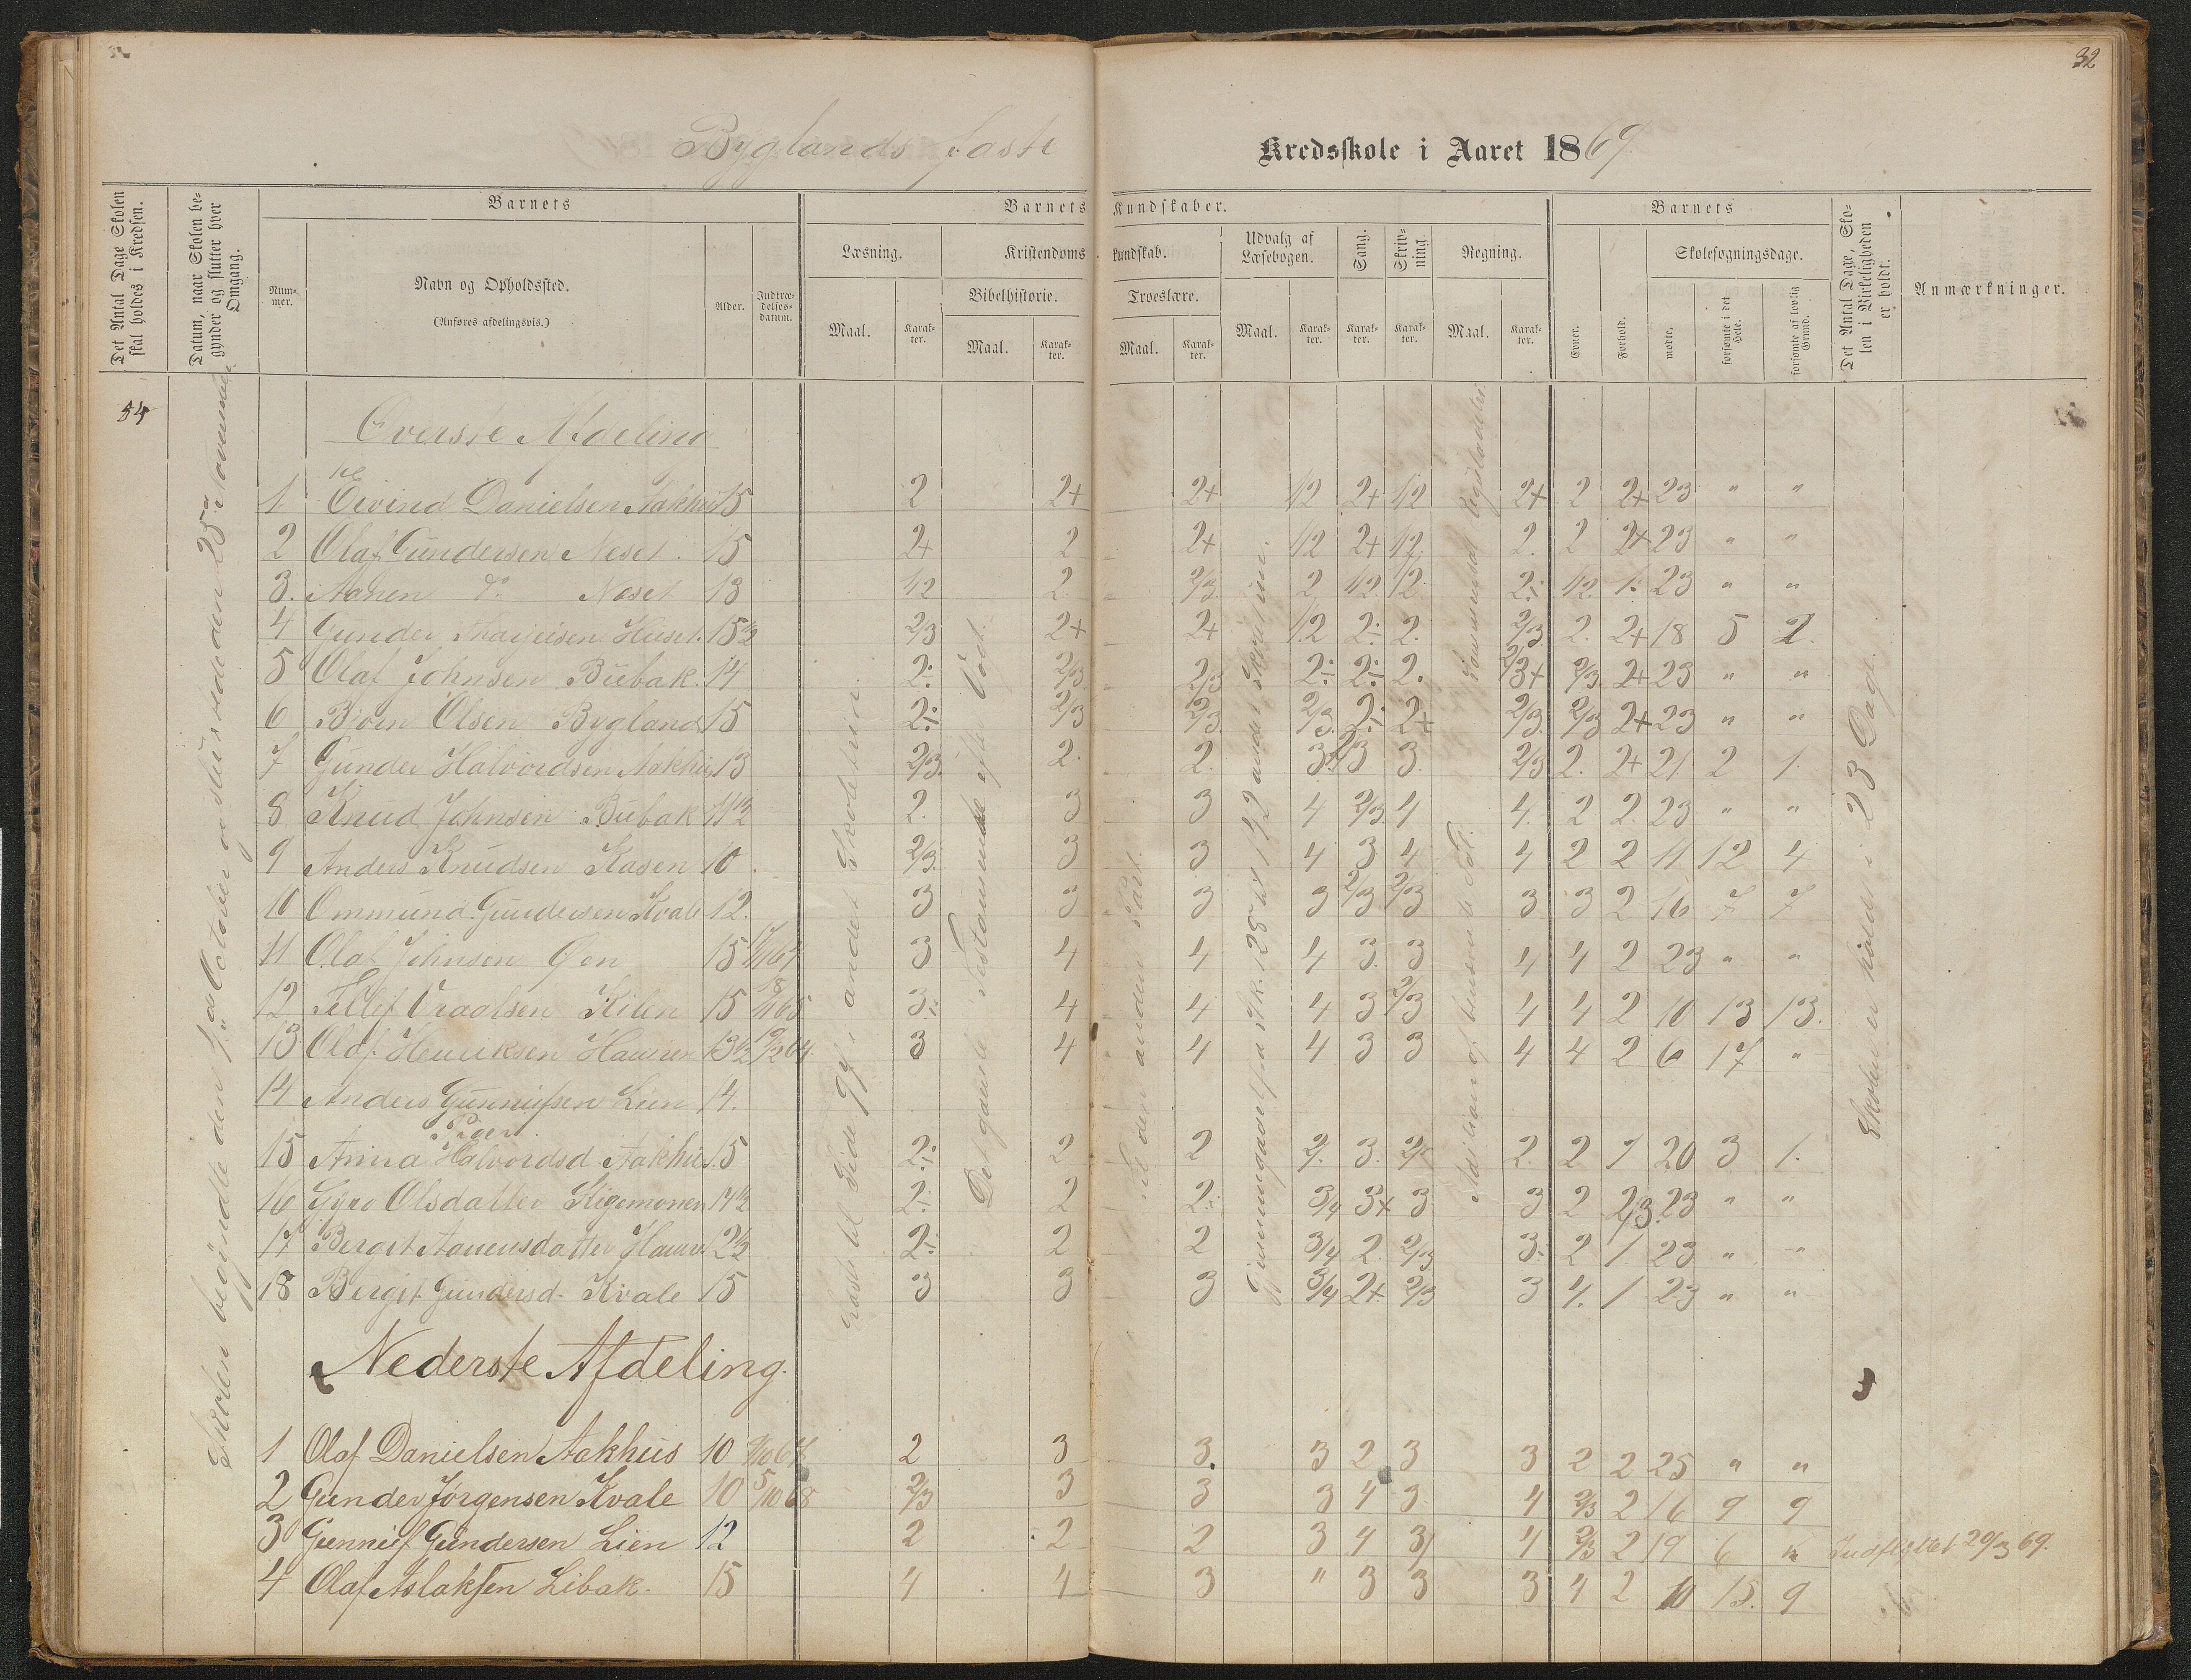 32
Byglands faste Kredsskole i Aaret 1869.
Det Antal Dage Skolen skal holdes i Kredsen.
Datum, naar Skolen begynder og slutter hver Omgang.
Barnets
Barnets Kundskaber.
Barnets
Det Antal Dage, Skolen i Virkeligheden er holdt.
Anmærkninger.
Nummer.
Navn og Opholdssted.
(Anføres afdelingsvis.)
Alder.
Indtrædelsesdatum.
Læsning.
Kristendomskundskab.
Udvalg af Læsebogen.
Sang.
Skrivning.
Regning.
Evner.
Forhold.
Skolesøgningsdage.
Bibelhistorie.
Troeslære.
mødte.
forsømte i det Hele.
forsømte af lovlig Grund.
Maal.
Karakter.
Maal.
Karakter.
Maal.
Karakter.
Maal.
Karakter.
Karakter.
Karakter.
Maal.
Karakter.
54
Skolen begyndte den October og sluttede den 25de November
Øverste Afdeling
1. Eivind Danielsen Aakhus 15 2 2+ 2+ 1/2 2+ 1/2 2+ 2 2+ 23 " "
2 Olaf Gundersen Neset. 15 2+ 2 2+ 1/2 2+ 1/2 2. 2 2+ 23 " "
3. Aanen do Neset 13 1/2 2 2/3 2 1/2 1/2 2÷ 1/2 1. 23 " "
4 Gunder Tharjeisen Huset. 15½ 2/3 2+ 2+ 1/2 2÷ 2. 2/3 2. 2+ 18 5 2.
5 Olaf Johnsen Bubak. 14 2÷ 2/3 2/3 2÷ 2÷ 2. 2/3+ 2/3 2+ 23 " "
6 Bjoen Olsen Bygland 15 2÷ 2/3 2/3 2/3 2÷ 2+ 2/3 2/3 2+ 23 " "
7 Gunder Halvordsen Aakhus 13 2/3 2. 2. 3 2/3 3. 2/3 2. 2+ 21 2 1.
8 Knud Johnsen Bubak 11½ 2. 3 3 4 2/3 4 4. 2 2. 23 " "
9 Anders Knudsen Kasen 10 2/3 3 3 4 3 4 4 2 2 11 12 4
10 Ommund Gundersen Kvale 12. 3 3 3 3 2/3 2/3 3 3 2 16 7 7
11 Olaf Johnsen Øen 15 3 4 4 4 3. 3 4 4 2 23 " "
12 Tellef Oraalsen Kilen 15 3÷ 4 4 4 3 2/3 4 4 2 10 13 13.
13 Olaf Henriksen Hauren 13½ 3 4 4 4 3 3 4 4 2 6 17 "
14 Anders Gunnufsen Lien 14.
Piger
15 Anna Halvordsd. Aakhus. 15 2÷ 2 2 2. 3. 2. 2 1 20 3 1.
16 Gyro Olsdatter Stigemonen 14½ 2÷ 2 2÷ 3/4 3+ 3 3 2 2/3. 23 " "
17 Bergit Aanensdatter 2÷ 2 2 3/4 2. 2/3 3. 2 1. 23 " "
18 Bergit Gundersd. Kvale 15 3 3 3 3/4 2+ 2/3 3 4. 1 23 " "
Læst til Side 97 i andet Skoletrin.
Det gamle Testamente efter Vogt.
til den anden Part.
Skolen er holdt i 23 Dage.
Nederste Afdeling.
1 Olaf Danielsen Aakhus 10 2 3 3. 3 2 3 3 2 2 25 " "
2 Gunder Jørgensen Kvale 10 5/10 68 2/3 3 3 3 4 3 4 2/3 2 16 9 9
3 Gunnuf Gundersen Lien 12 2 2 2 3 4 3 4 2/3 2 19 6 Indflyttet 20/3 69.
4 Olaf Aslaksen Libak. 15 4 4 3 " 3 3 3 4 2 10 15. 9